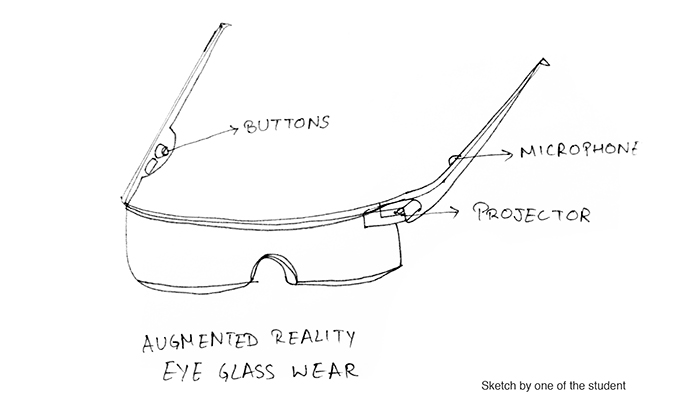 BUTTONS
MICROPHONE
PROJECTOR
AUGMENTED REALITY
EYE GLASS WEAR
Sketch by one of the student